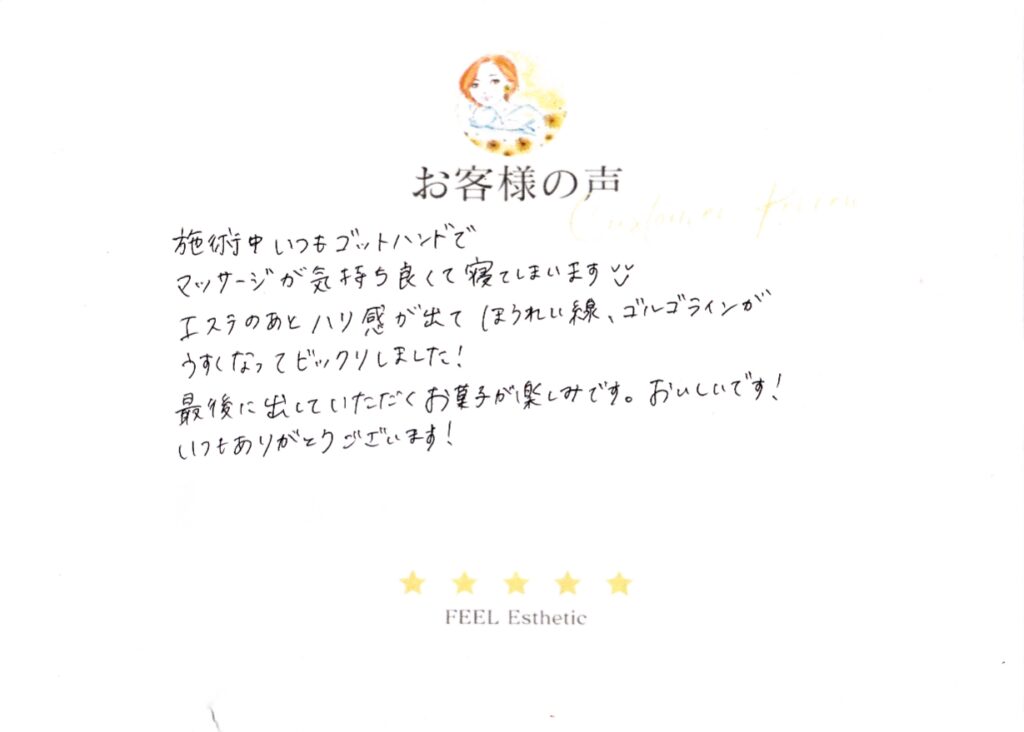 お客様の声
Customer Review
施術中いつもゴットハンドで
マッサージが気持ち良くて寝てしまいます
エステのあとハリ感が出てほうれい線、ゴルゴラインが
うすくなってビックリしました!
最後に出していただくお菓子が楽しみです。おいしいです!
いつもありがとうございます!
FEEL Esthetic